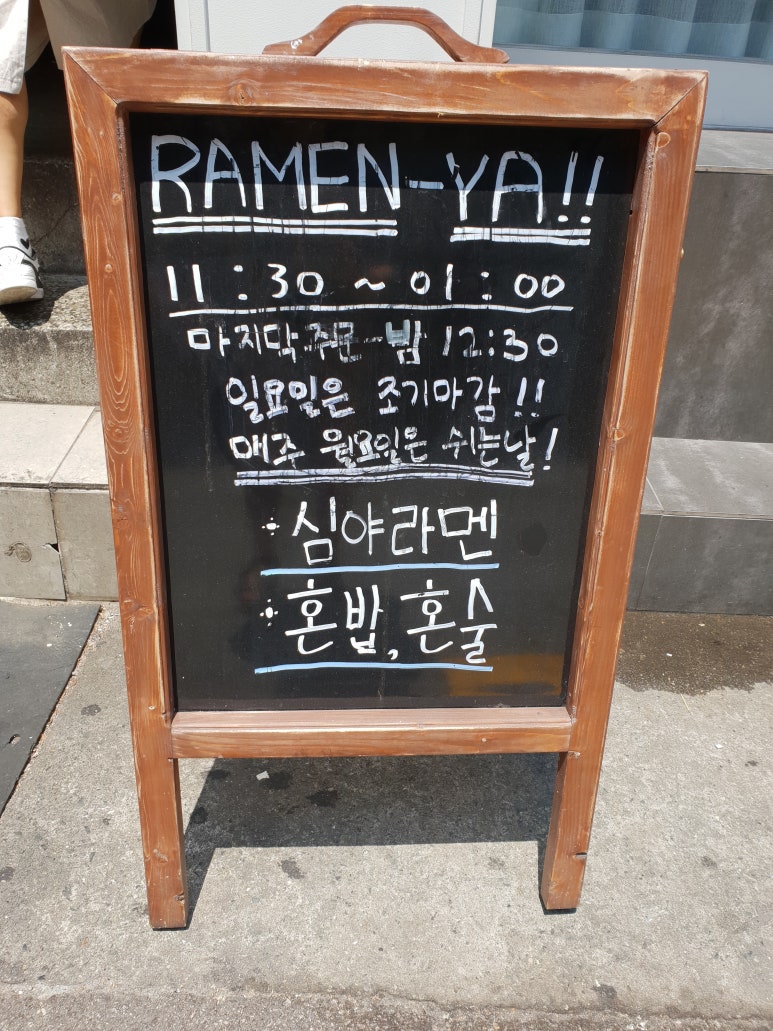 RAMEN-YA!!
11:30 ~ 01:00
마지막주문-밤 12:30
일요일은 조기마감!!
매주 월요일은 쉬는날!
심야라멘
혼밥, 혼술